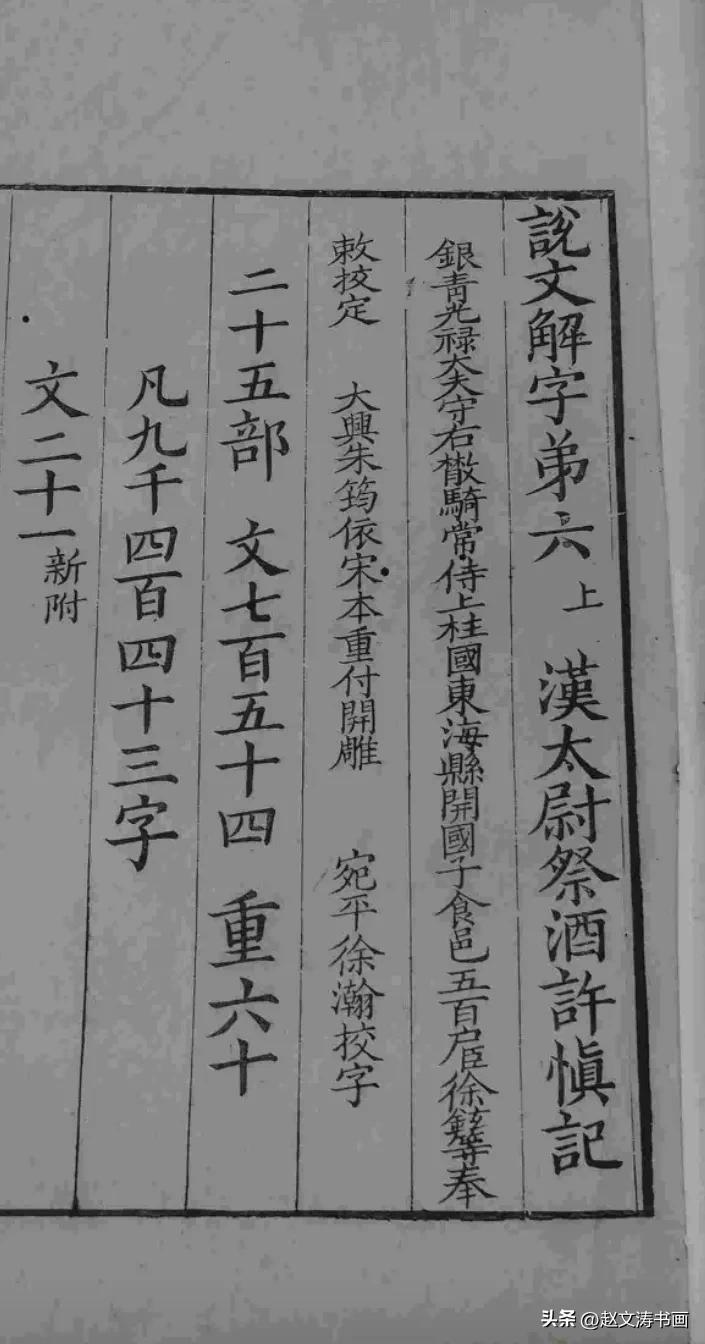 說文解字弟六上　漢太尉祭酒許慎記
銀青光禄大夫守右㪚騎常侍上柱國東海縣開國子食邑五百户臣徐鉉等奉
敕挍定　大興朱筠依宋本重付開雕　宛平徐瀚挍字
二十五部　文七百五十四　重六十
凡九千四百四十三字
文二十一新附
头条 @赵文涛书画